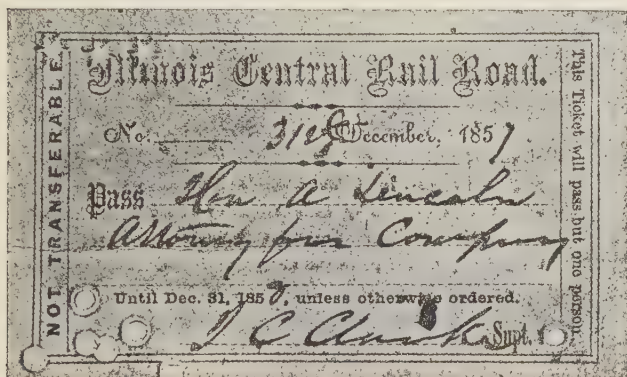 NOT TRANSFERABLE.
Illinois Central Rail Road.
No. 31st December, 1857
Pass Hon A Lincoln
Attorney for Company
Until Dec. 31, 1858, unless otherwise ordered.
J C Clark Supt.
This Ticket will pass but one person.